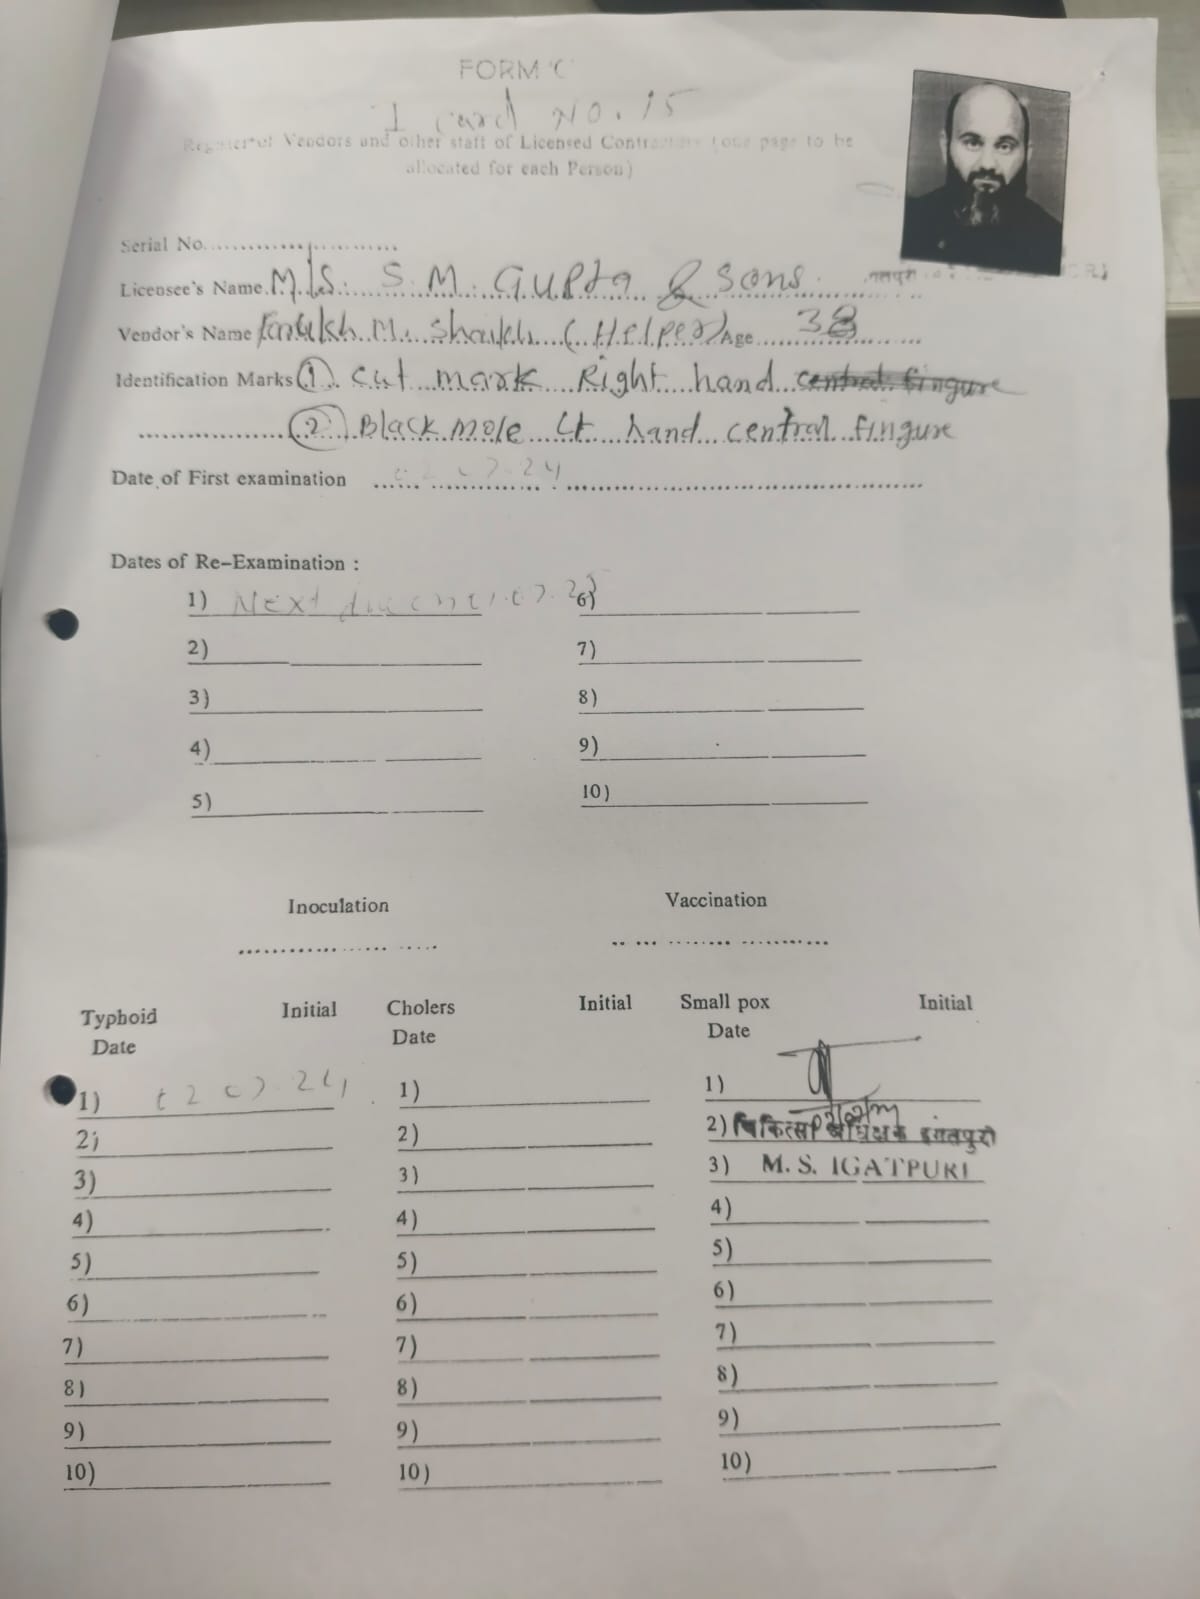 FORM 'C'
I card NO. 15
Register of Vendors and other staff of Licensed Contractors (one page to be
allocated for each Person)
Serial No.
Licensee's Name M/S. S. M. Gupta & Sons.
Vendor's Name M. Shaikh (Helper) Age 38
Identification Marks ① cut mark Right hand central fingure
② Black mole Lt hand central fingure
Date of First examination 02.07.24
Dates of Re-Examination :
1) Next due 6)
2) 7)
3) 8)
4) 9)
5) 10)
Inoculation Vaccination
Typhoid Initial Cholers Initial Small pox Initial
Date Date Date
1) 02 07 24 1) 1)
2) 2) 2) चिकित्सा अधिक्षक इगतपुरी
3) 3) 3) M. S. IGATPURI
4) 4) 4)
5) 5) 5)
6) 6) 6)
7) 7) 7)
8) 8) 8)
9) 9) 9)
10) 10) 10)